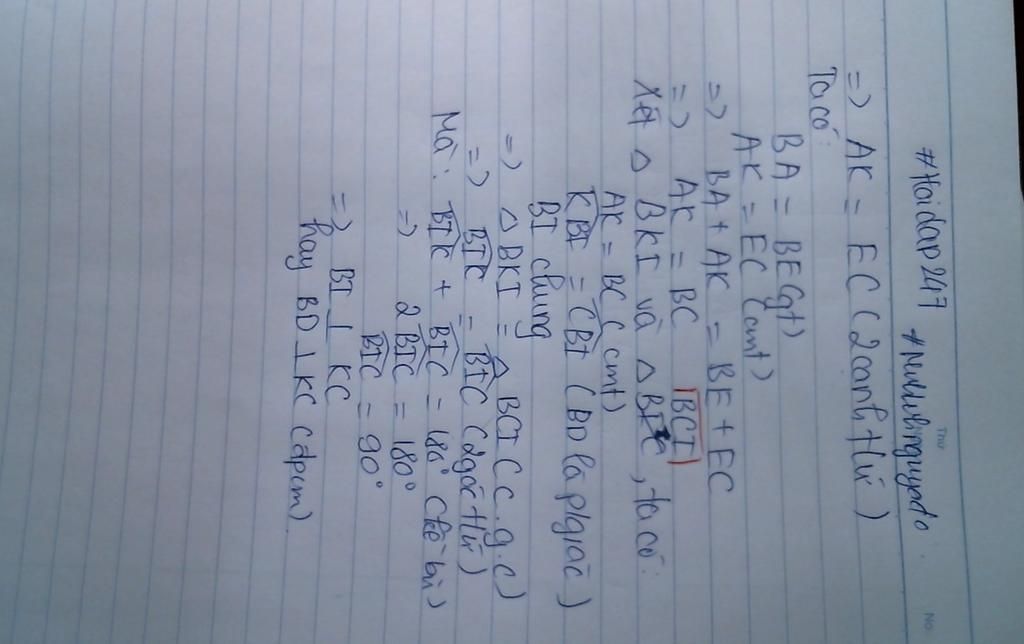 Thứ
No
#Hoidap247 #Newlinhnguyndo.
=> AK = EC (2 cạnh t/ứ)
Ta có:
BA = BE (gt)
AK = EC (cmt)
=> BA + AK = BE + EC
=> AK = BC
|BCI|
Xét △ BKI và △ BIC, ta có:
AK = BC (cmt)
KBI = CBI (BD là p/giác)
BI chung
=> △ BKI = △ BCI (c.g.c)
=> BIK = BIC (2 góc t/ứ)
Mà: BIK + BIC = 180° (kề bù)
=> 2 BIC = 180°
BIC = 90°
=> BI ⊥ KC
hay BD ⊥ KC (đpcm).